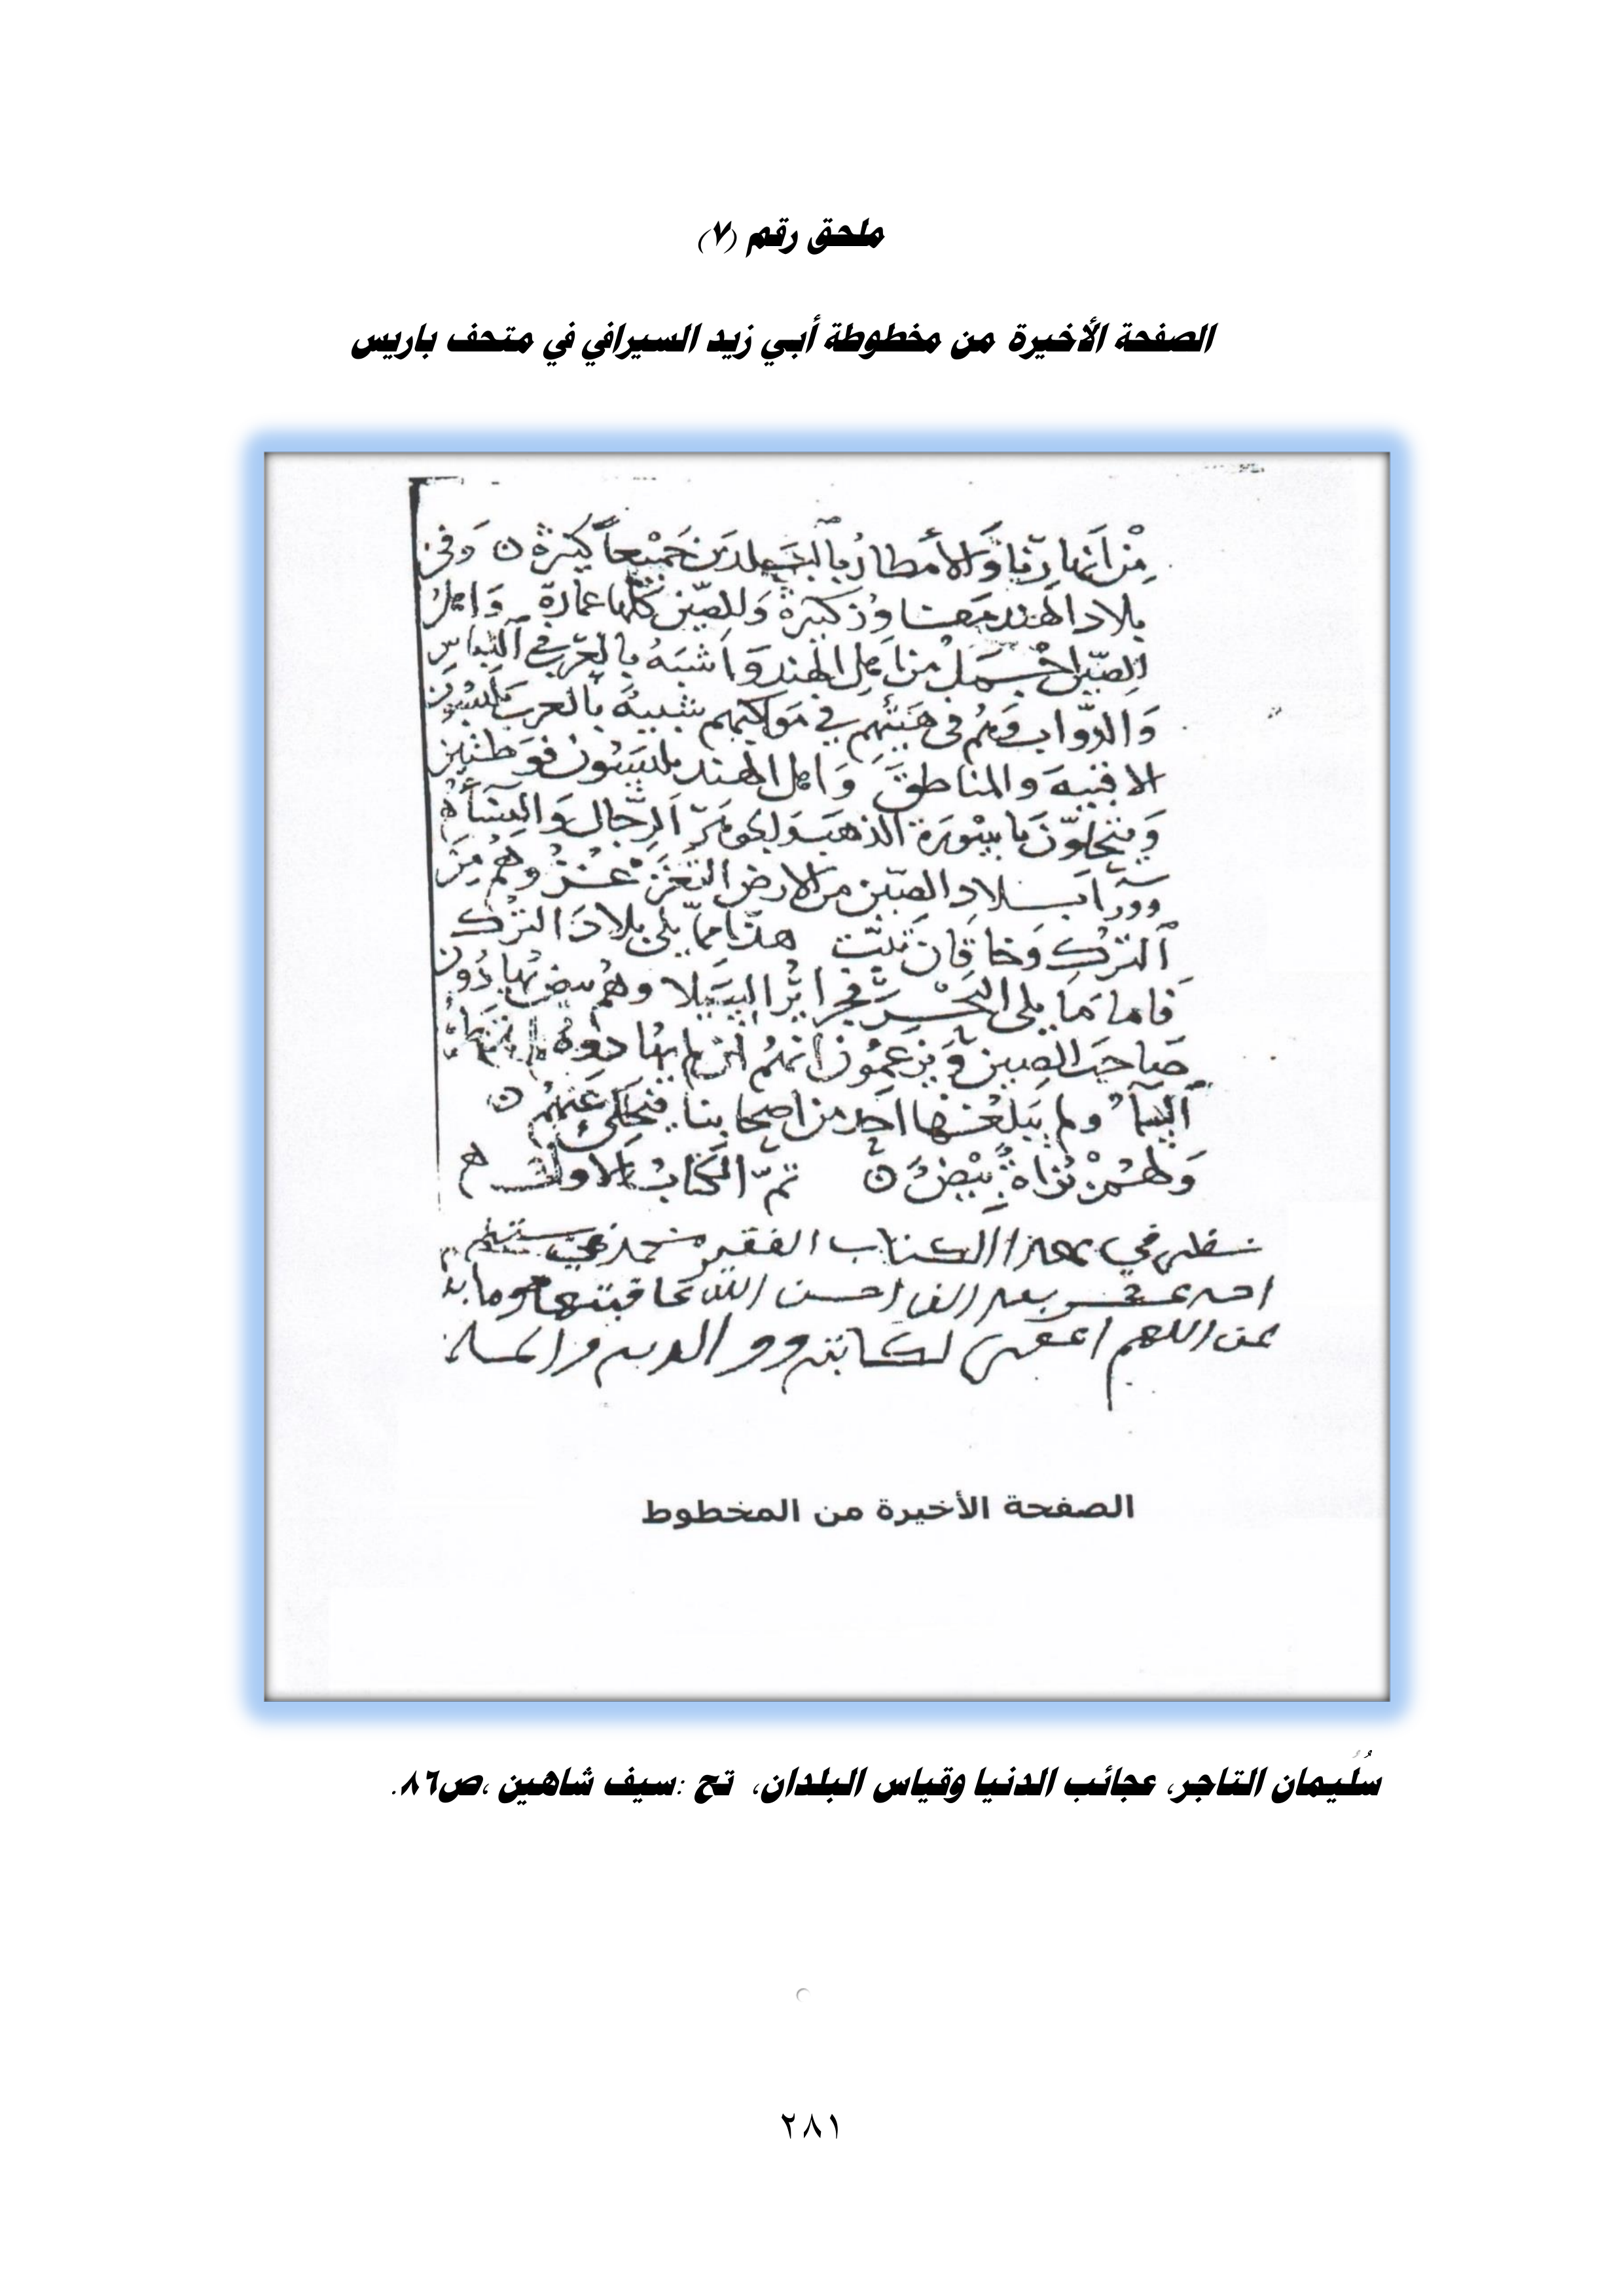 ملحق رقم (٧)
الصفحة الأخيرة من مخطوطة أبي زيد السيرافي في متحف باريس
مِنْ أنهارنا وَالأمطارُ بالبلدين جَمْيْعاً كثيرة ن وَفي
بلاد الهند مفاوز كثيرة وَالصّين كلّها عمارة وَاهلُ
الصّين اجْمَلُ من اهل الهند وَاشبَهُ بالعرَب في اللباس
وَالدّواب وَهُم في هَيئتهم في مَواكبهم شبيهٌ بالعرب يلبسُون
الاقبية والمناطق وَاهل الهند يلبسُون فوطتين
وَيتحلّون باسْورة الذهب وَالجوهر الرّجال وَالنسَآ ه
وورآ بلاد الصّين من الارض التغزغز وهُم مِنَ
الترْك وَخاقان تبّت هذا ممّا يلي بلادَ الترْك
فاما مَا يلي البَحْر فجزائر السِيلا وهُم بيض يُهادُون
صَاحبَ الصين وَيزعمُون انهمُ ان لم يهادوهُ لم تمطرهم
السمآ ولم يَبلغها احد من اصحابنا فيحكي عَنهُم ن
وَلهُمْ بُزاة بِيْضٌ ن تمّ الكتابُ الاول ه
نظر في هذا الكتاب الفقير محمد في سنة
احد عشر بعد الف احسن الله عاقبتها وما بعد
اللهم اغفر لكاتبه ووالديه والمسلمين
الصفحة الأخيرة من المخطوط
سُلَيمان التاجر، عجائب الدنيا وقياس البلدان، تح :سيف شاهين ،ص٨٦.
٢٨١